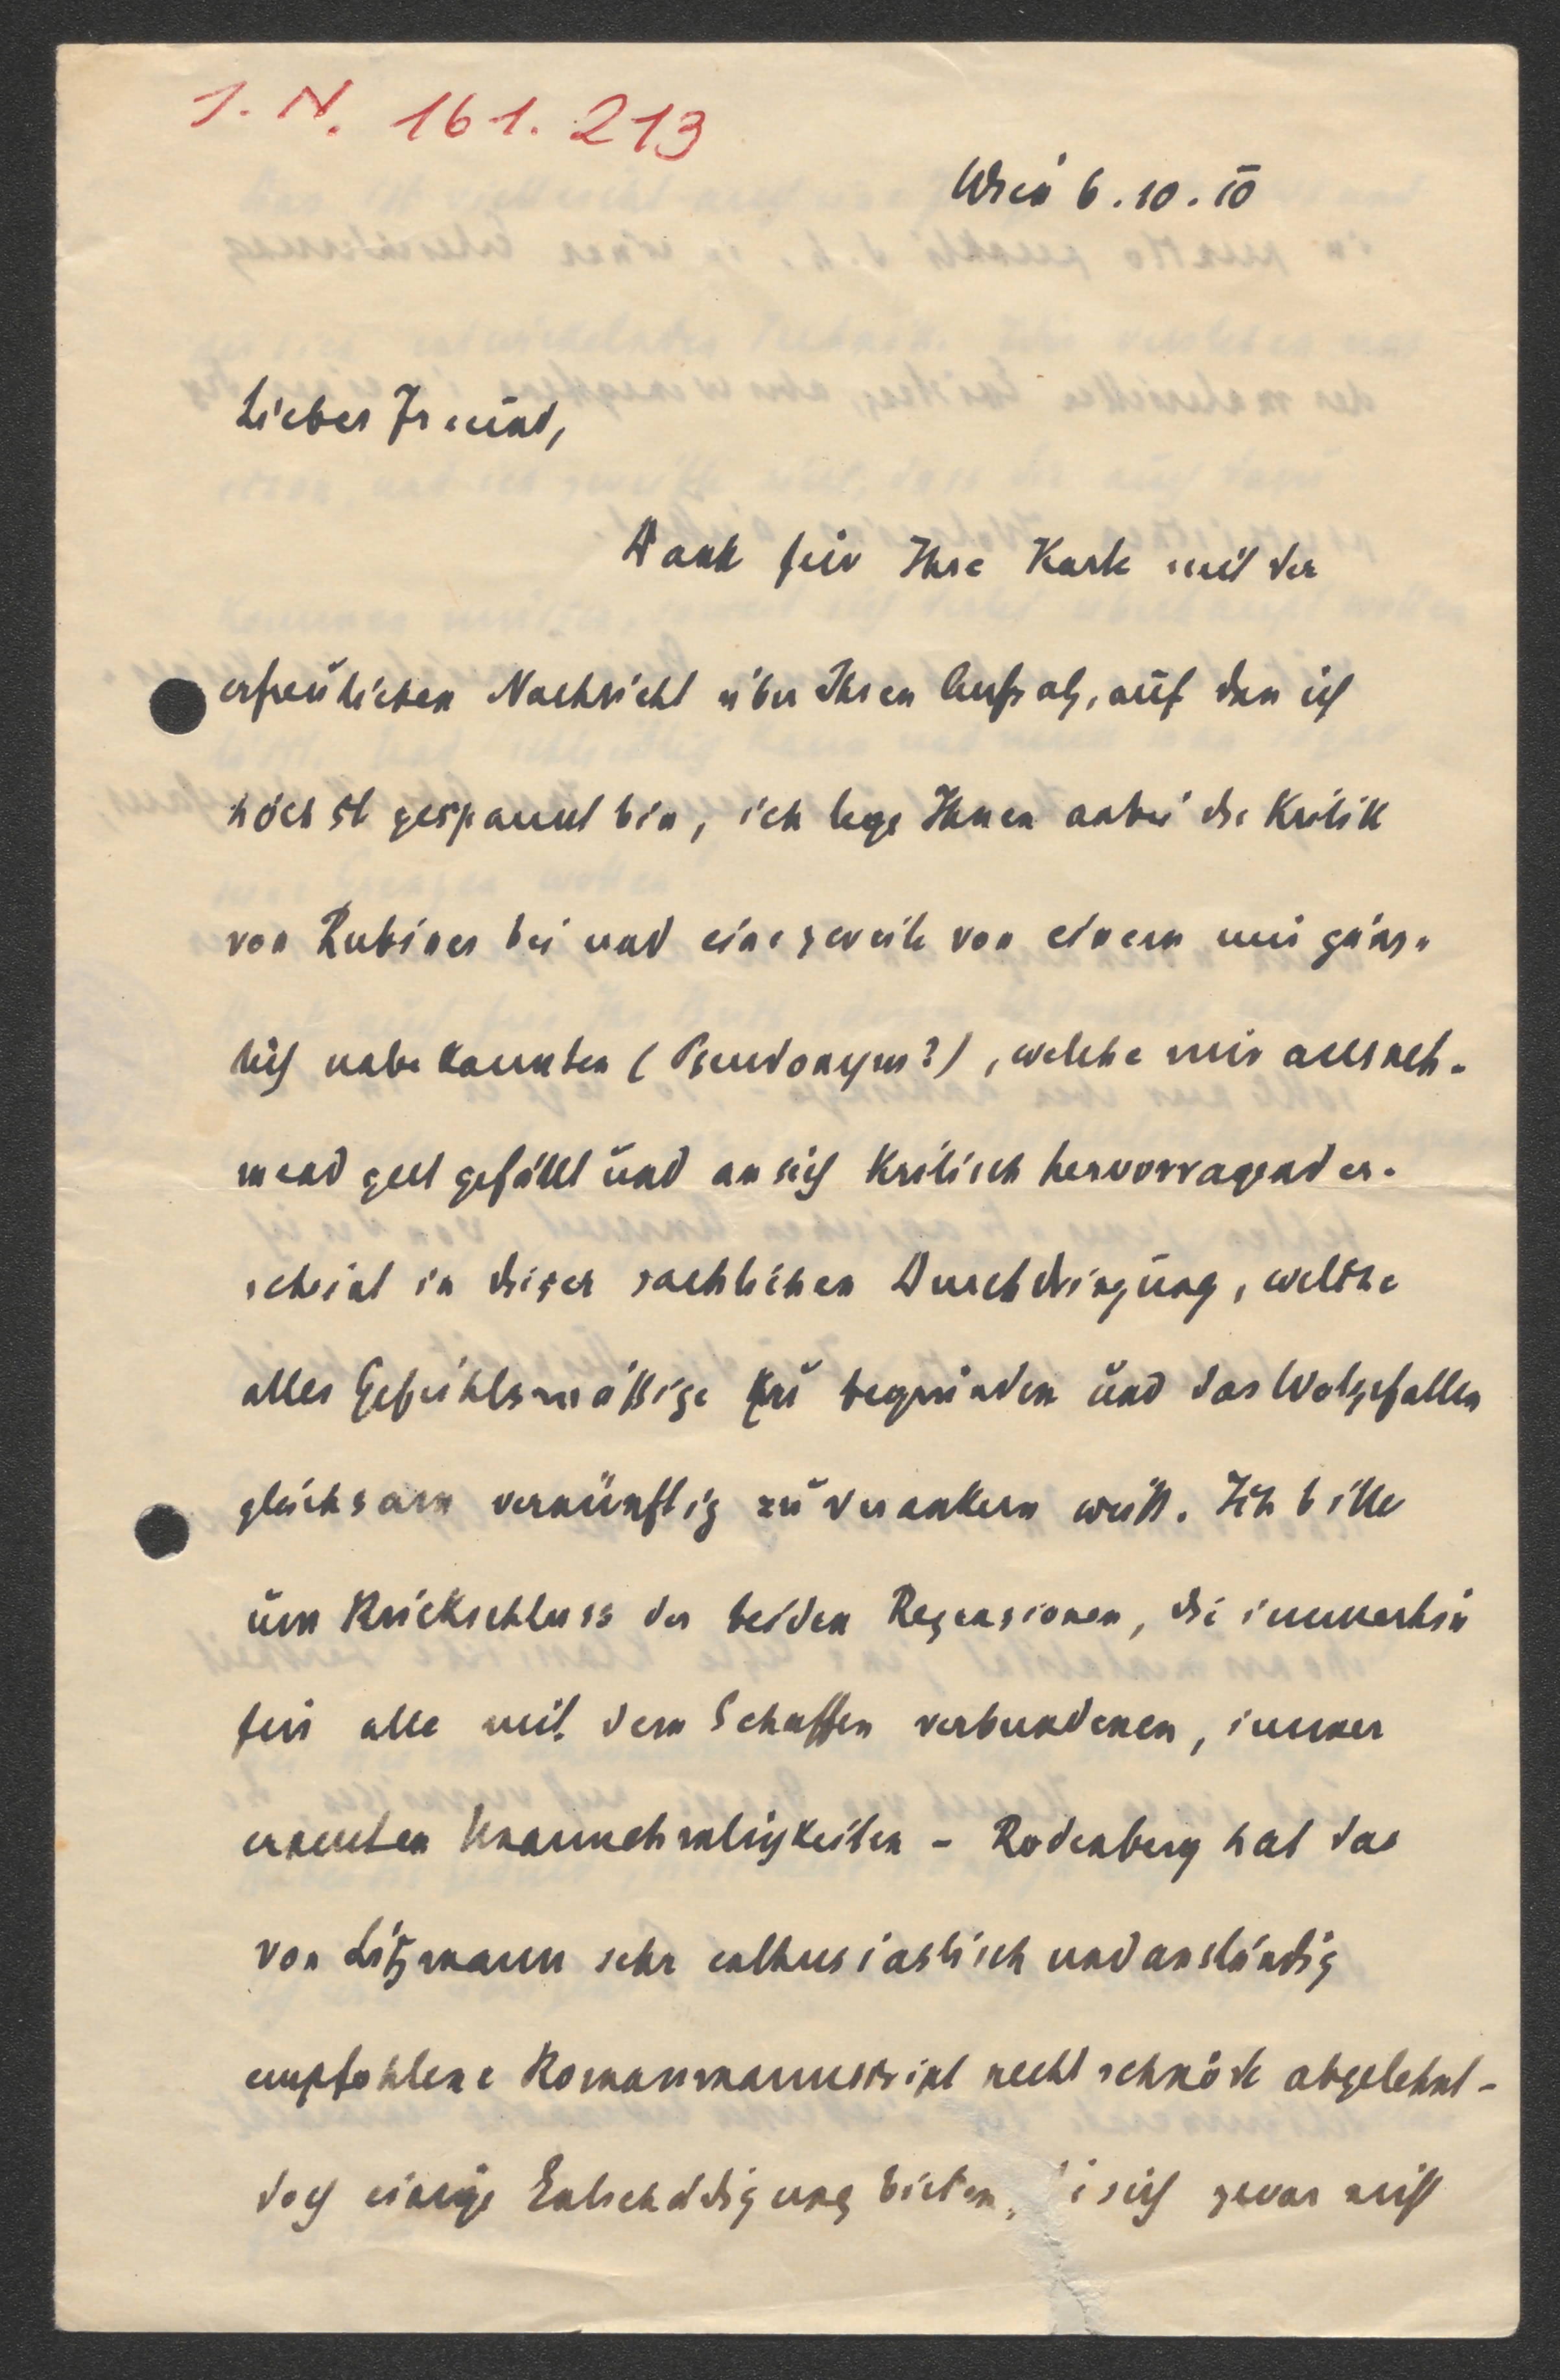 I. N. 161.213
Wien 6.10.10
Lieber Freund,
Dank für Ihre Karte mit der
erfreulichen Nachricht über Ihren Aufsatz, auf den ich
höchst gespannt bin, ich lege Ihnen anbei die Kritik
von Rubiner bei und eine zweite von einem mir gänz-
lich unbekannten (Pseudonym?), welche mir ausneh-
mend gut gefällt und an sich kritisch hervorragend er-
scheint in dieser sachlichen Durchdringung, welche
alles Gefühlsmäßige zu begründen und das Wolgefallen
gleichsam vernünftig zu verankern weiß. Ich bitte
um Rückschluss der beiden Rezensionen, die immerhin
für alle mit dem Schaffen verbundenen, immer
erneuten Unannehmlichkeiten – Rodenberg hat das
von Litzmann sehr enthusiastisch und anständig
empfohlene Romanmanuskript recht schnöde abgelehnt –
doch einige Entschädigung bieten, sich zwar nicht